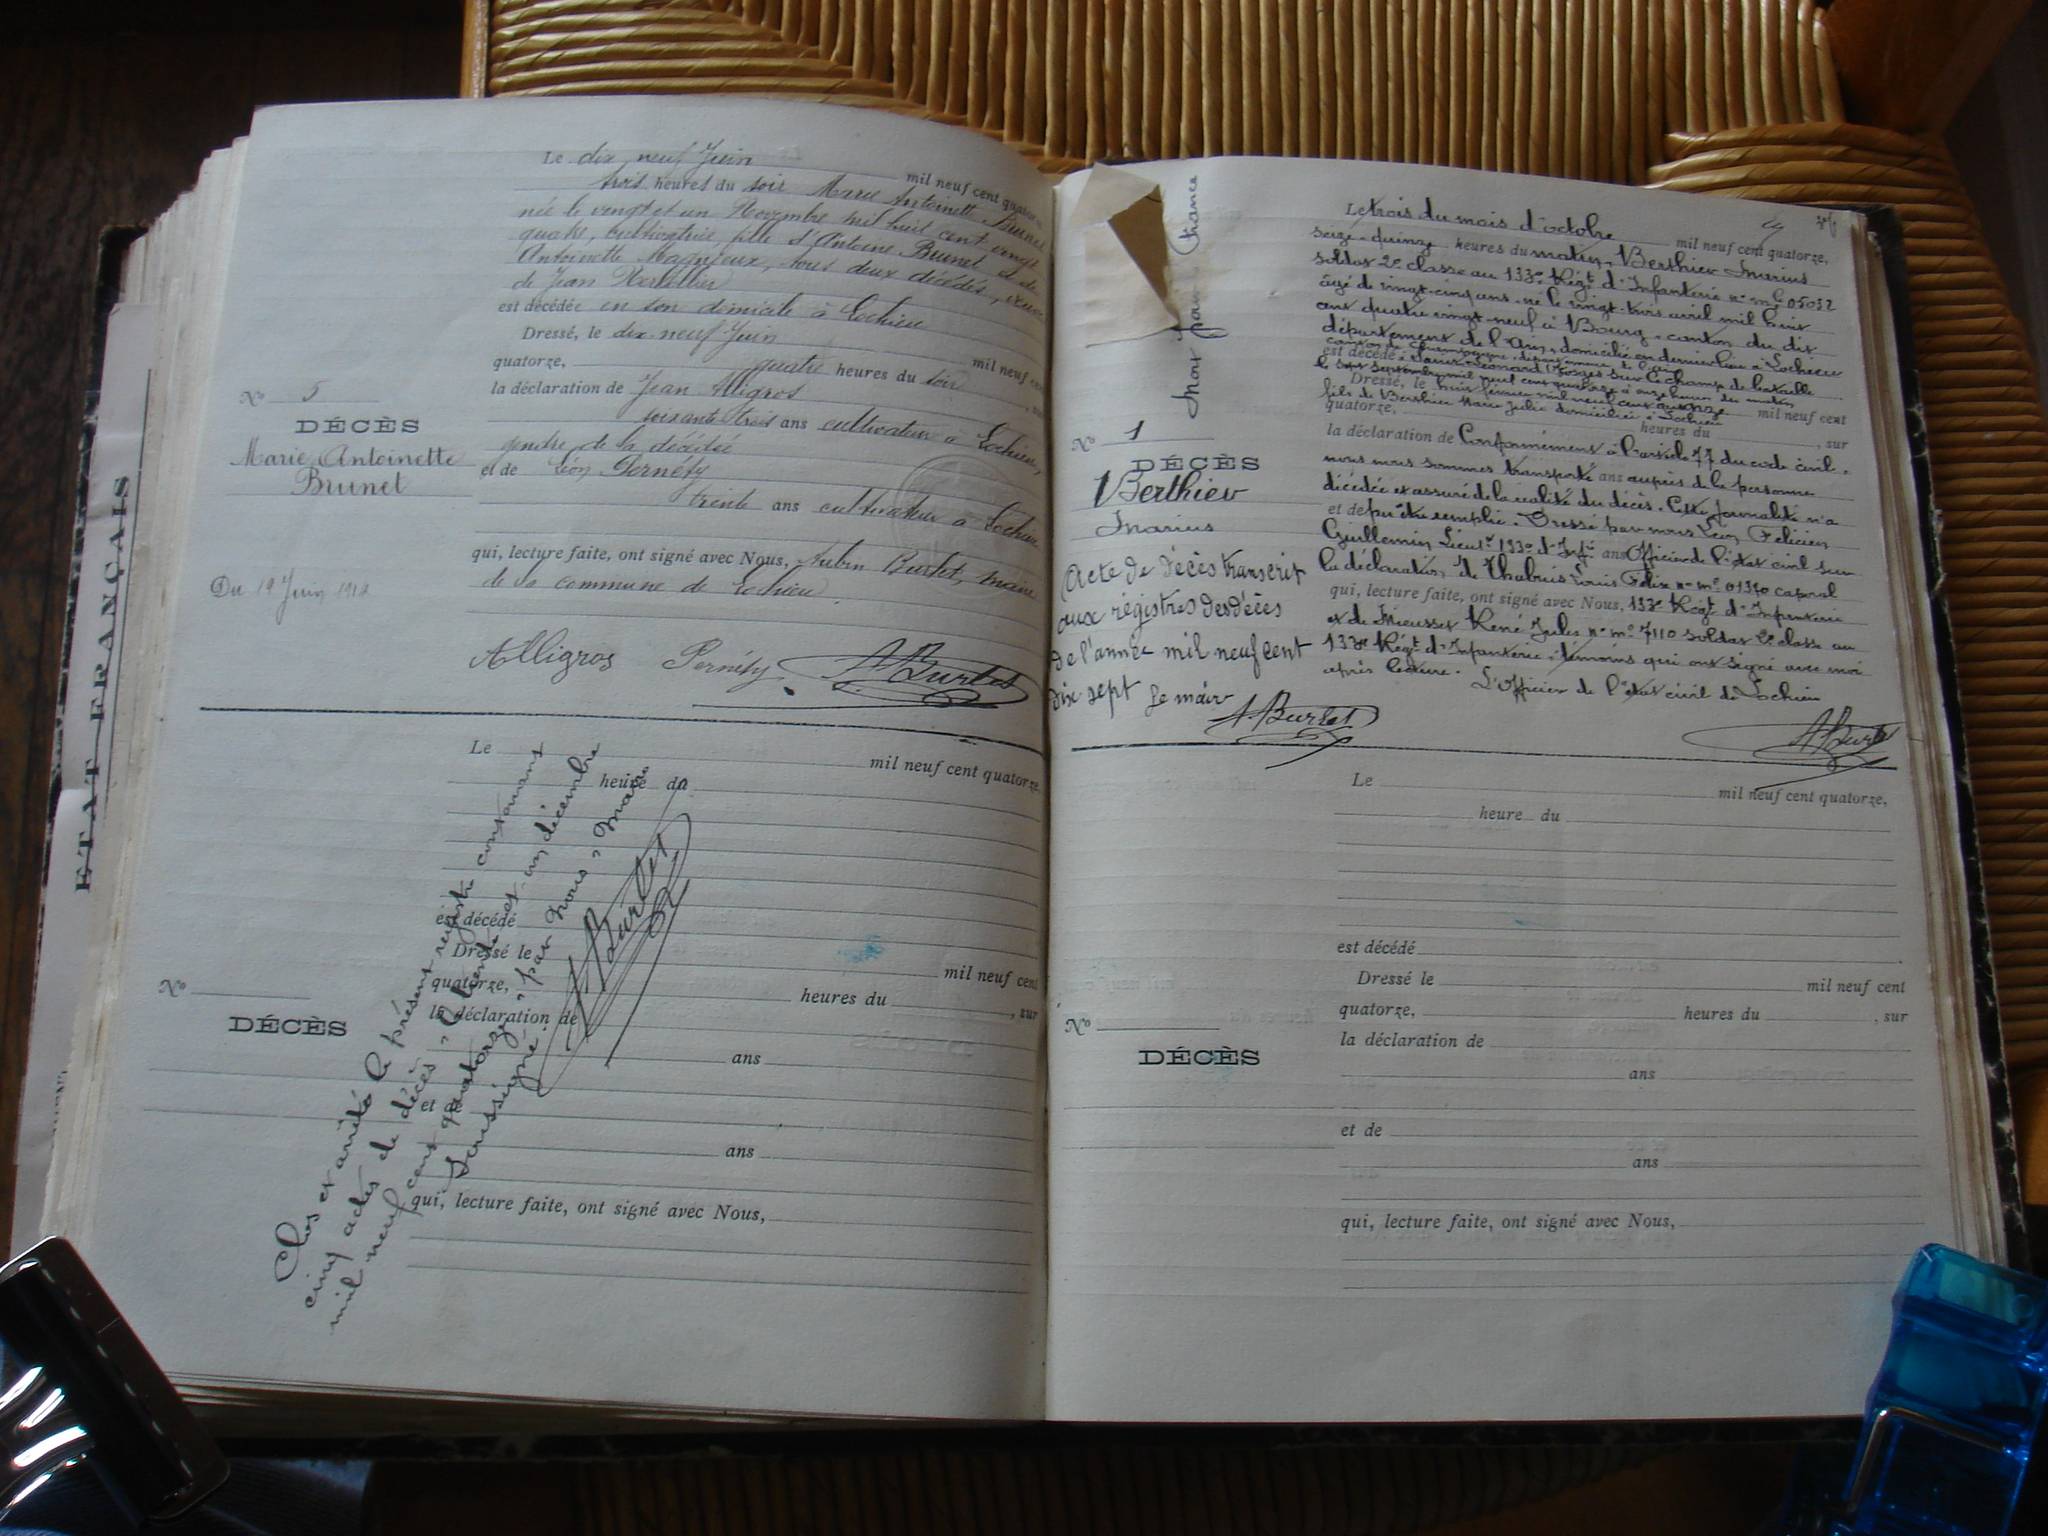 Le dix neuf Juin mil neuf cent quatorze
trois heures du soir Marie Antoinette Brunet
née le vingt et un Novembre mil huit cent vingt
quatre, cultivatrice, fille d'Antoine Brunet et de
Antoinette Magnieux, tous deux décédés, veuve
de Jean
est décédée en son domicile à Lochieu
Dressé, le dix-neuf Juin mil neuf cent
quatorze, quatre heures du soir, sur
la déclaration de Jean Alligros
soixante trois ans cultivateur à Lochieu,
gendre de la décédée
et de Léon Pernéty
trente ans cultivateur à Lochieu
qui, lecture faite, ont signé avec Nous, Aubin Burlet, maire
de la commune de Lochieu.
Alligros Pernéty ABurlet
No 5
DÉCÈS
Marie Antoinette
Brunet
Du 19 Juin 1914
Le mil neuf cent quatorze,
heure du
est décédé
Dressé le mil neuf cent
quatorze, heures du , sur
la déclaration de
ans
et de
ans
qui, lecture faite, ont signé avec Nous,
No
DÉCÈS
Clos et arrêté le présent registre contenant
cinq actes de décès, le trente et un décembre
mil neuf cent quatorze, par Nous, Maire
Soussigné.
ABurlet
ETAT FRANÇAIS
Le trois du mois d'octobre mil neuf cent quatorze,
seize-quinze heures du matin, Berthier Marius
soldat 2e classe au 133e Régt d'Infanterie n° mle 05032
âgé de vingt-cinq ans né le vingt-trois avril mil huit
cent quatre vingt neuf à Bourg, canton du dit
département de l'Ain, domicilié en dernier lieu à Lochieu
canton de Champagne, département de l'Ain
est décédé à Saint Léonard Vosges sur le champ de bataille
le sept septembre mil neuf cent quatorze à onze heures du matin
Dressé, le huit février mil neuf cent quinze mil neuf cent
fils de Berthier Marie Julie domiciliée à Lochieu
quatorze, heures du , sur
la déclaration de Conformément à l'article 77 du code civil,
nous nous sommes transporté ans auprès de la personne
décédée et assuré de la réalité du décès. Cette formalité n'a
et de pu être remplie. Dressé par nous Léon Félicien
Guillemin Lieutt 133e d'Infie ans Officier de l'état civil sur
la déclaration de Thabuis Louis Félix n° mle 01370 caporal
qui, lecture faite, ont signé avec Nous, 133e Régt d'Infanterie
et de Mieusset René Jules n° mle 7110 soldat 2e classe au
133e Régt d'Infanterie, témoins qui ont signé avec moi
après lecture. L'Officier de l'état civil de Lochieu
ABurlet
Mort pour la France
No 1
DÉCÈS
Berthier
Marius
Acte de décès transcrit
aux régistres des décès
de l'année mil neuf cent
dix sept Le maire
ABurlet
Le mil neuf cent quatorze,
heure du
est décédé
Dressé le mil neuf cent
quatorze, heures du , sur
la déclaration de
ans
et de
ans
qui, lecture faite, ont signé avec Nous,
No
DÉCÈS